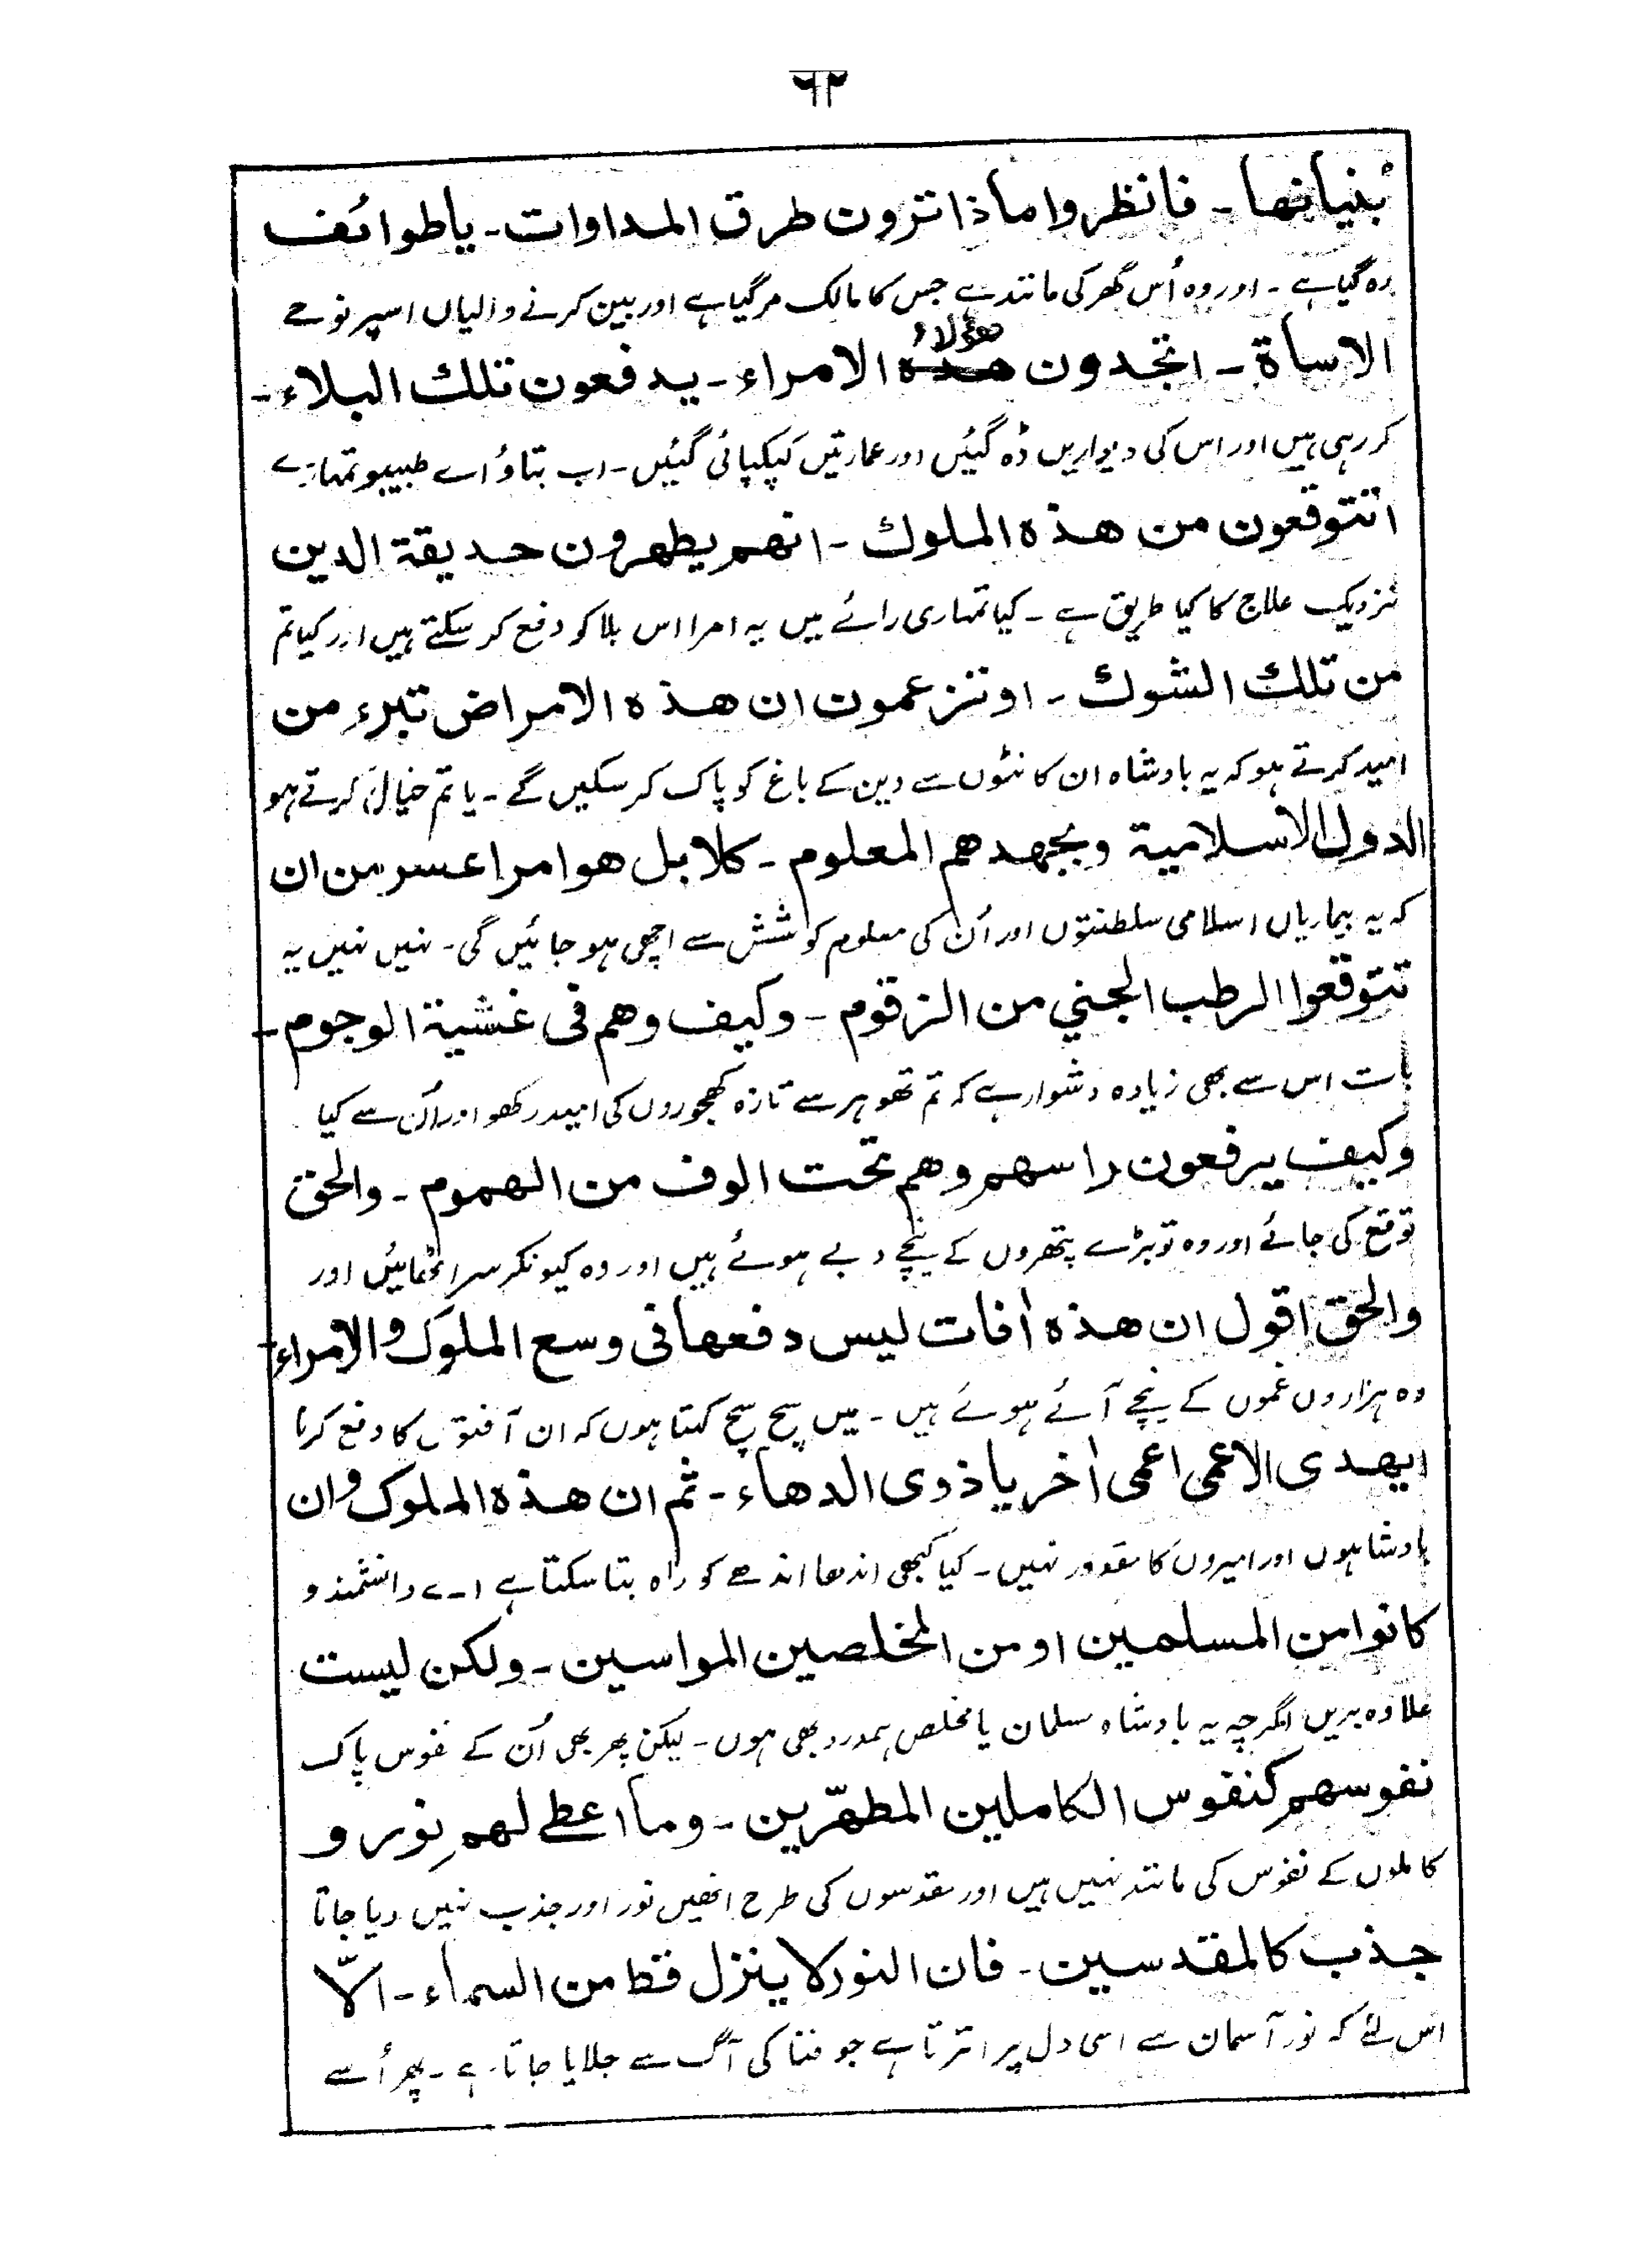 ٦٢
بنيانها۔ فانظروا ماذا ترون طرق المداوات۔ يا طوائف
رہ گیا ہے۔ اور وہ اُس گھر کی مانند ہے جس کا مالک مر گیا ہے اور بین کرنے والیاں اسپر نوحے
هؤلاء
الاساة۔ اتجدون هذه الامراء۔ يدفعون تلك البلاء۔
کر رہی ہیں اور اس کی دیواریں ڈہ گئیں اور عمارتیں کپکپائی گئیں۔ اب بتاؤ اے طبیبو تمہارے
اتتوقعون من هذه الملوك۔ انهم يطهرون حديقة الدين
نزدیک علاج کا کیا طریق ہے۔ کیا تمہاری رائے میں یہ امرا اس بلا کو دفع کر سکتے ہیں اور کیا تم
من تلك الشوك۔ او تزعمون ان هذه الامراض تبرء من
امید کرتے ہو کہ یہ بادشاہ ان کانٹوں سے دین کے باغ کو پاک کر سکیں گے۔ یا تم خیال کرتے ہو
الدول الاسلامية وبجهدهم المعلوم۔ كلا بل هو امر اعسر من ان
کہ یہ بیماریاں اسلامی سلطنتوں اور اُن کی معلوم کوشش سے اچھی ہو جائیں گی۔ نہیں نہیں یہ
تتوقعوا الرطب الجني من الزقوم۔ وكيف وهم فى غشية الوجوم۔
بات اس سے بھی زیادہ دشوار ہے کہ تم تھوہر سے تازہ کھجوروں کی امید رکھو اور اُن سے کیا
وكيف يرفعون راسهم وهم تحت الوف من الهموم۔ والحق
توقع کی جائے اور وہ تو بڑے پتھروں کے نیچے دبے ہوئے ہیں اور وہ کیونکر سر اٹھائیں اور
والحق اقول ان هذه اٰفات ليس دفعها فى وسع الملوك والامراء۔
وہ ہزاروں غموں کے نیچے آئے ہوئے ہیں۔ میں سچ سچ کہتا ہوں کہ ان آفتوں کا دفع کرنا
ايهدى الاعمى اعمى اٰخر يا ذوى الدهاء۔ ثم ان هذه الملوك وان
بادشاہوں اور امیروں کا مقدور نہیں۔ کیا کبھی اندھا اندھے کو راہ بتا سکتا ہے اے دانشمندو
كانوا من المسلمين او من المخلصين المواسين۔ ولكن ليست
علاوہ بریں اگرچہ یہ بادشاہ مسلمان یا مخلص ہمدرد بھی ہوں۔ لیکن پھر بھی اُن کے نفوس پاک
نفوسهم كنفوس الكاملين المطهّرين۔ وما اعطے لهم نور و
کاملوں کے نفوس کی مانند نہیں ہیں اور مقدسوں کی طرح انھیں نور اور جذب نہیں دیا جاتا
جذب كالمقدسين۔ فان النور لا ينزل قط من السماء۔ الّا
اس لئے کہ نور آسمان سے اسی دل پر اترتا ہے جو فنا کی آگ سے جلایا جاتا ہے۔ پھر اُسے